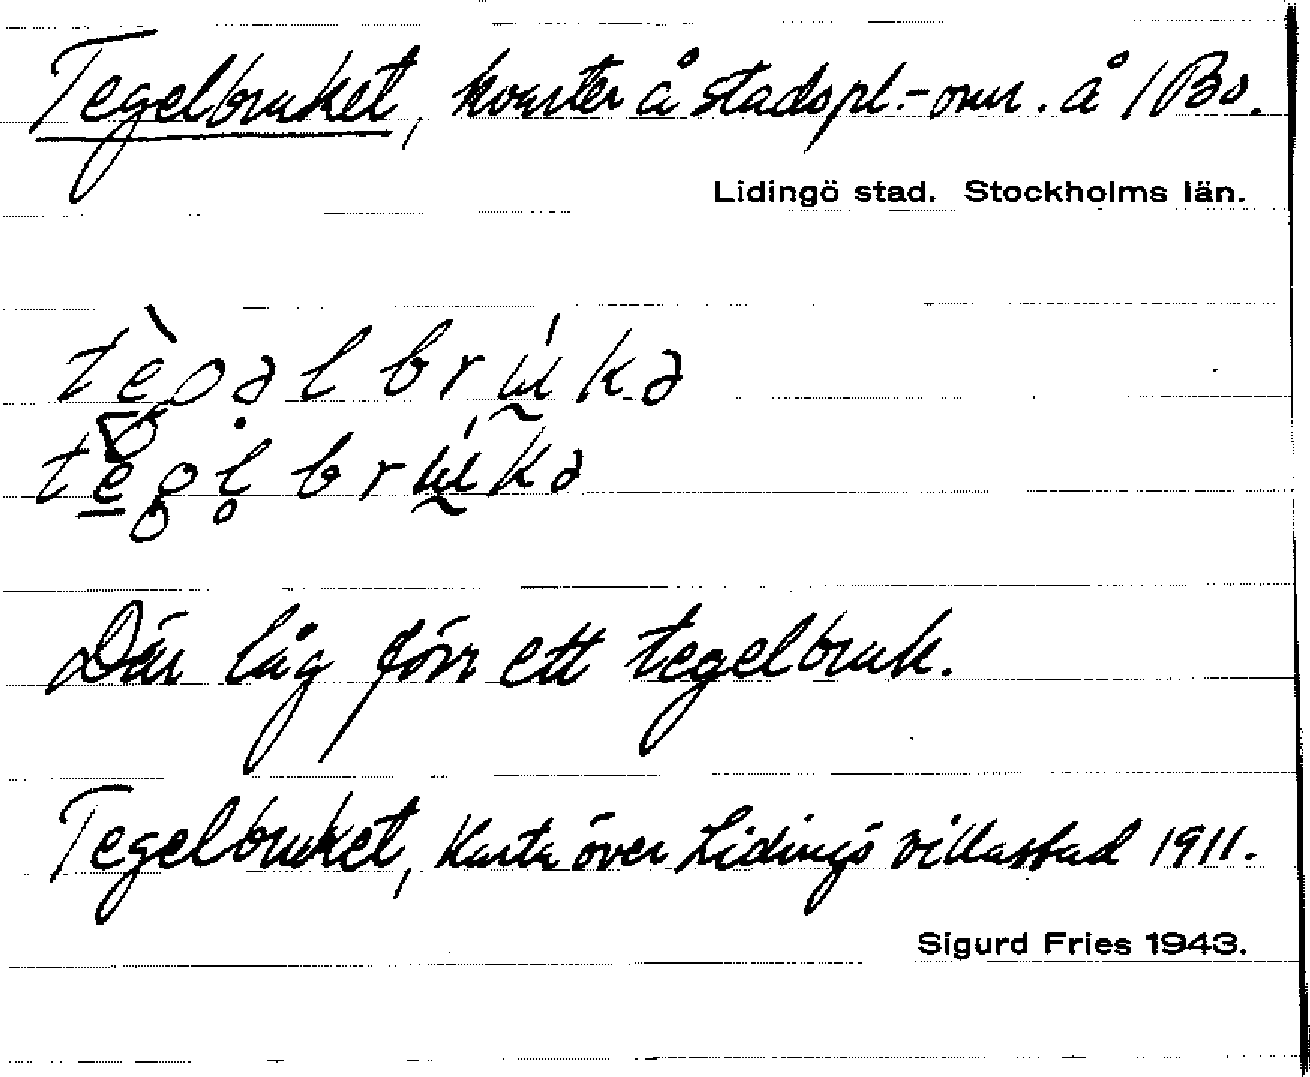 Tegelbruket, kvarter å stadspl.-omr. å 1 Bo.
Lidingö stad. Stockholms län.
tègəl brúkə
tegl brúkə
Där låg förr ett tegelbruk.
Tegelbruket, Karta över Lidingö villastad 1911.
Sigurd Fries 1943.